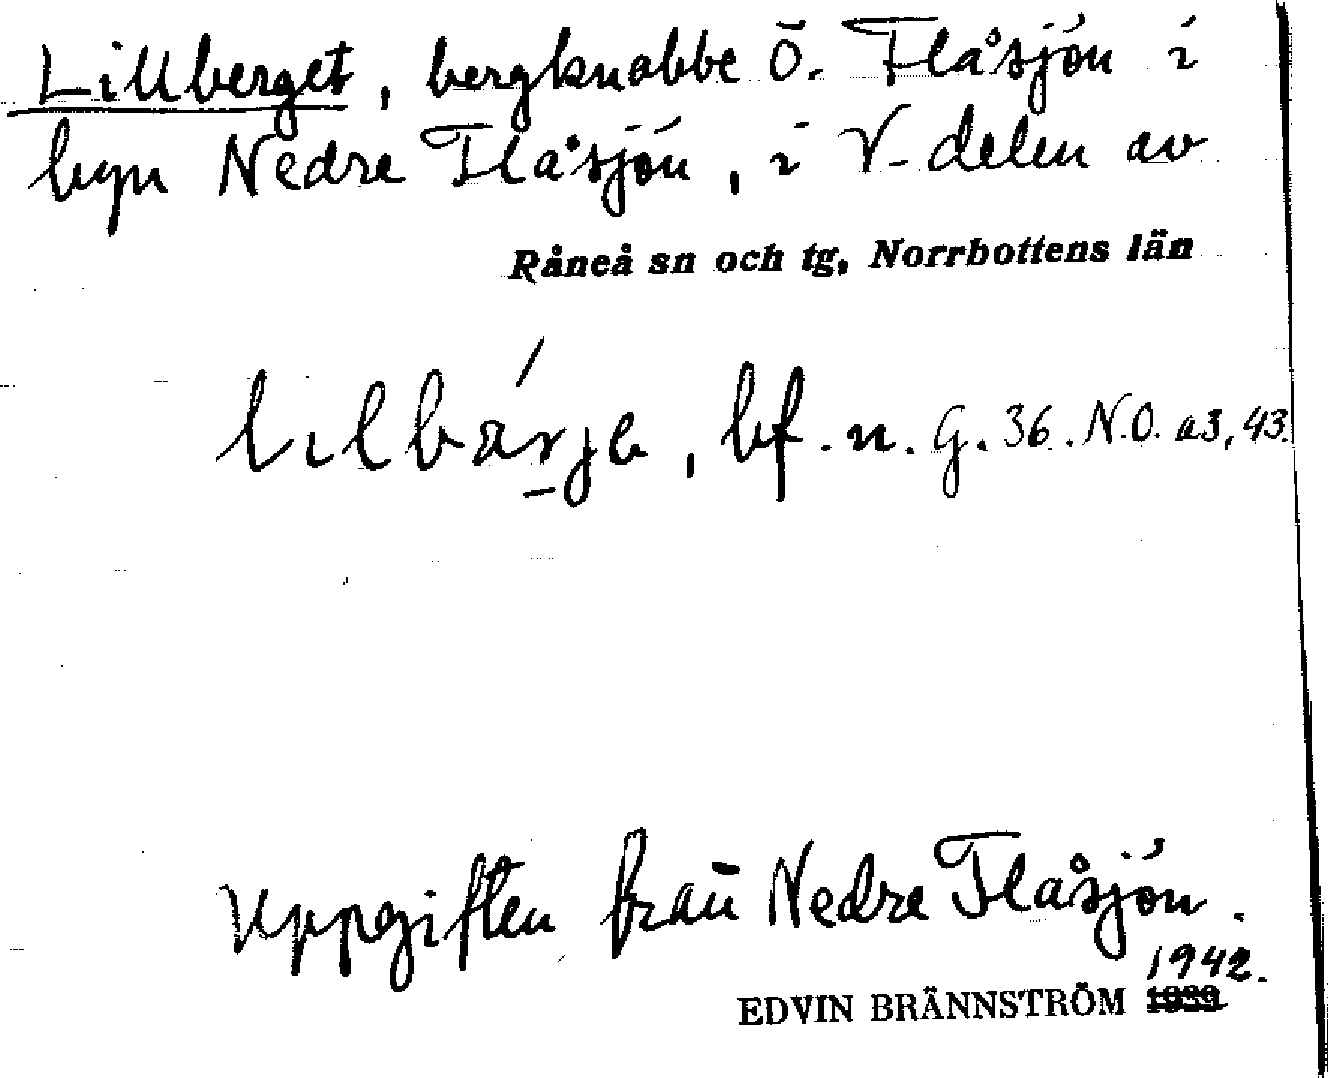 Lillberget, bergknabbe Ö. Flåsjön i
byn Nedre Flåsjön, i V-delen av
Råneå sn och tg, Norrbottens län
bf. n. G. 36. N.O. a3, 43.
Uppgiften från Nedre Flåsjön.
1942.
EDVIN BRÄNNSTRÖM 1939